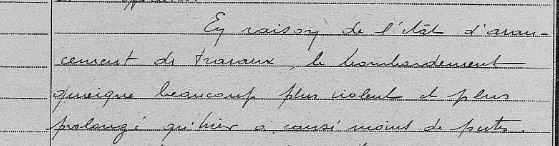 En raison de l'état d'avan-
cement des travaux, le bombardement
quoique beaucoup plus violent et plus
prolongé qu'hier a causé moins de pertes.